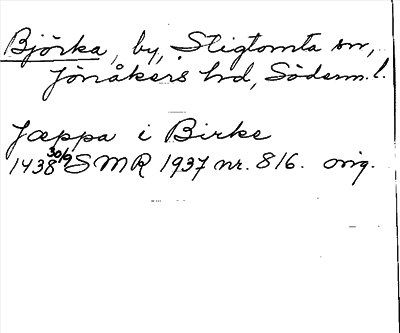 Björka, by, Stigtomta sn,
Jönåkers hd, Söderm. l.
Jæppa i Birke
1438 30/9 SMR 1937 nr. 816. orig.